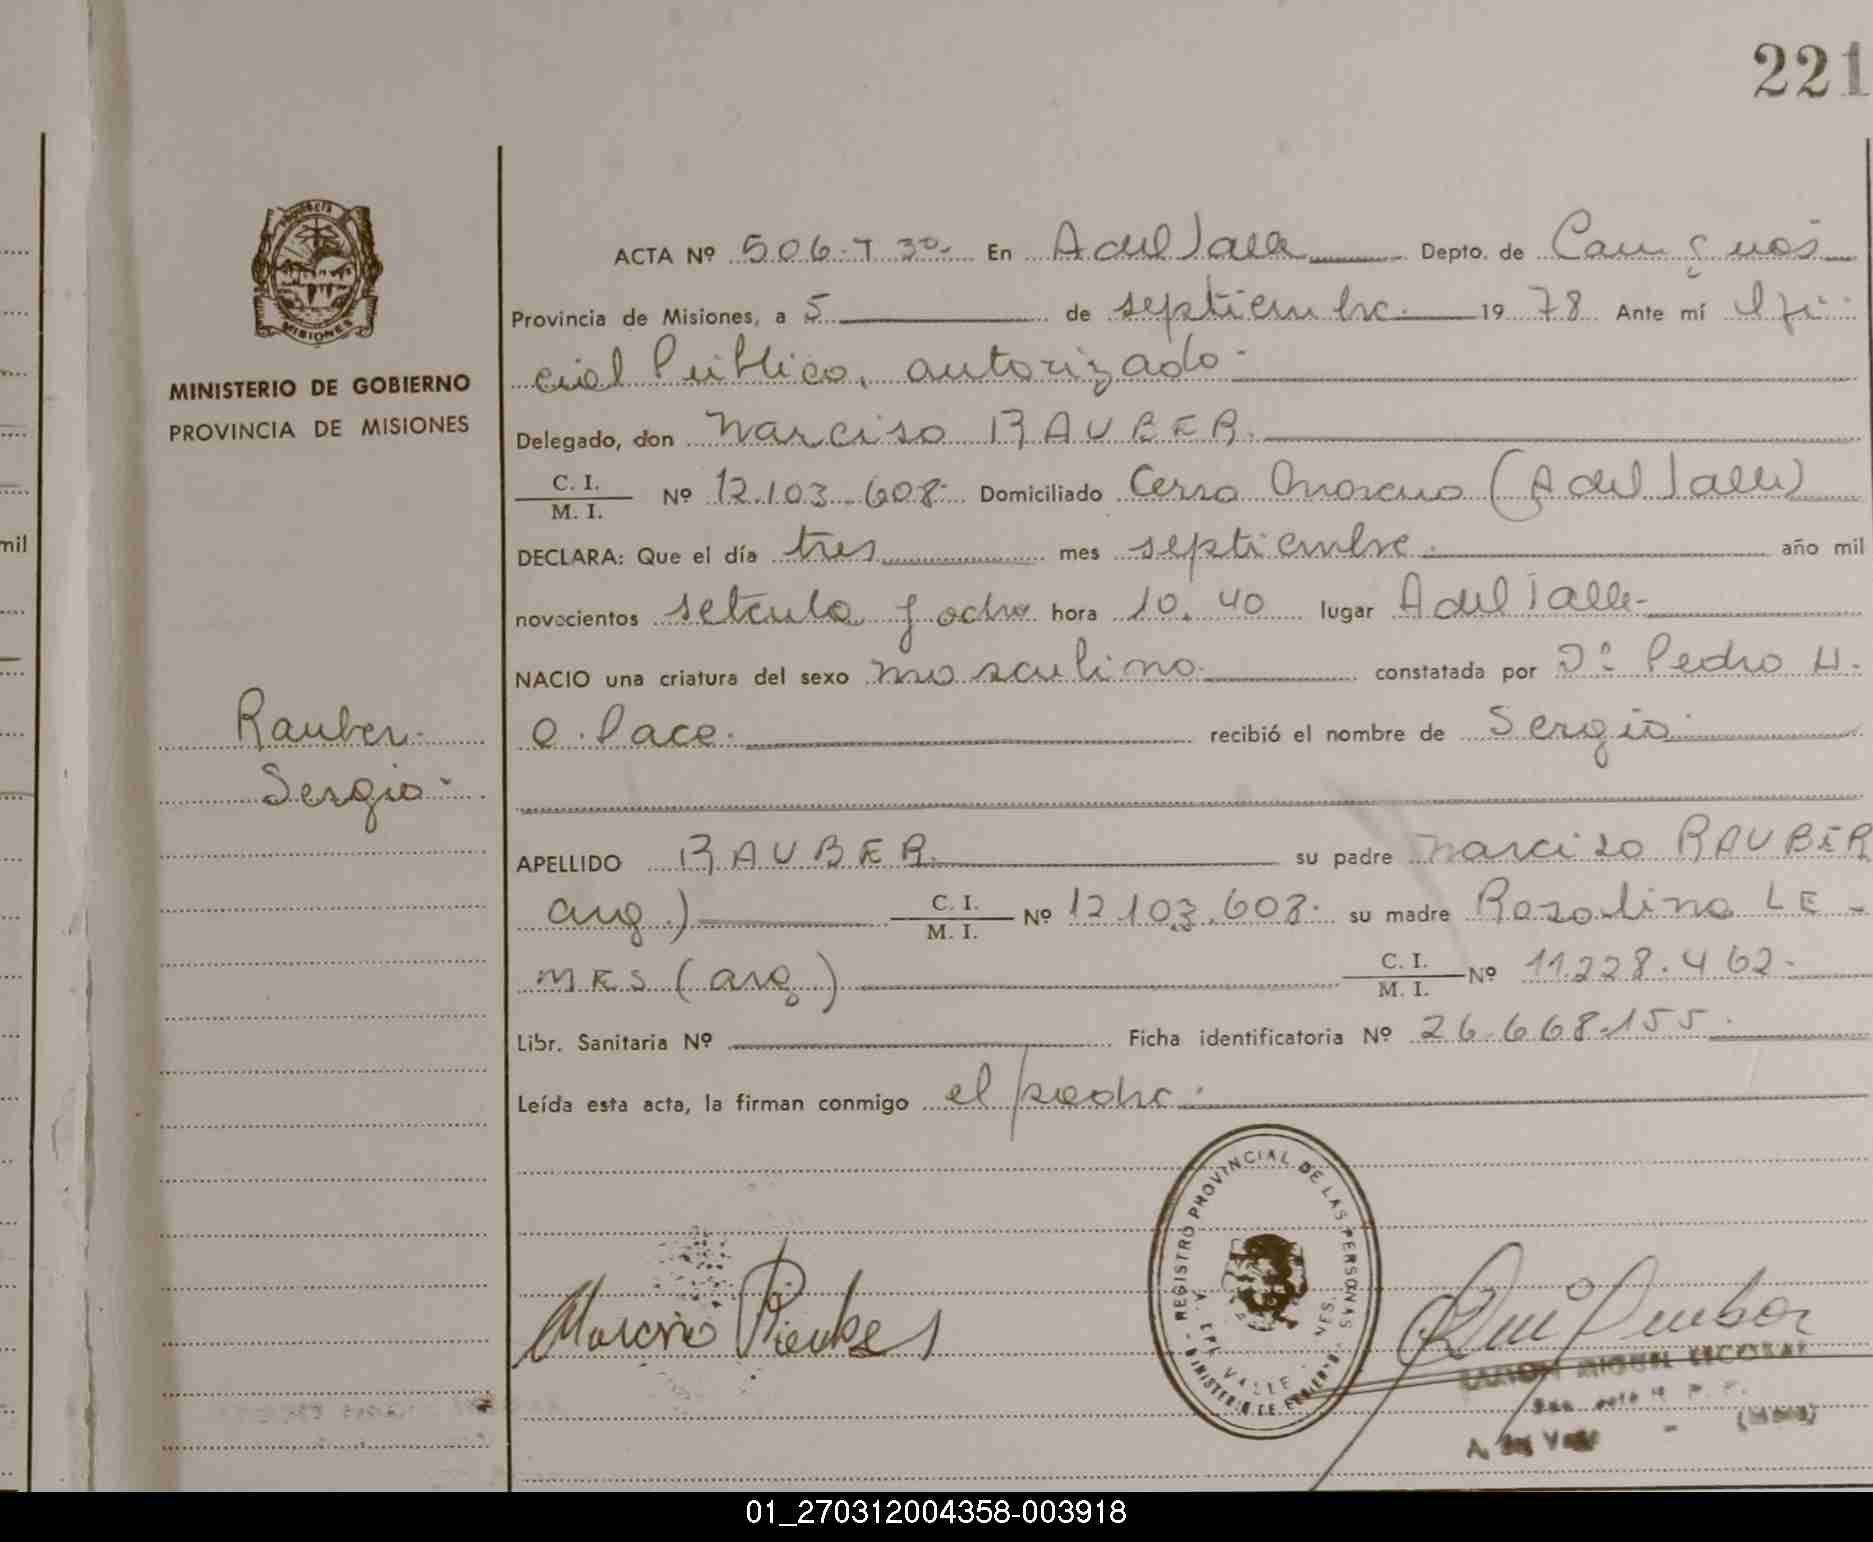 221
ACTA Nº 506-T 3º- En A del Valle Depto. de Cainguás
Provincia de Misiones, a 5 de septiembre 1978 Ante mí Ofi-
cial Público, autorizado-
MINISTERIO DE GOBIERNO
PROVINCIA DE MISIONES
Delegado, don Narciso RAUBER.
C. I.
M. I. Nº 12.103.608- Domiciliado Cerro Moreno (A del Valle)
DECLARA: Que el día tres mes septiembre. año mil
novecientos setenta y ocho hora 10.40 lugar A del Valle-
NACIO una criatura del sexo masculino. constatada por Dº Pedro H.
Rauber.
O. Pace. recibió el nombre de Sergio
Sergio-
APELLIDO RAUBER. su padre Narciso RAUBER
arg.) C. I.
M. I. Nº 12.103.608. su madre Rosalina LE-
MES (arg) C. I.
M. I. Nº 11.228.462-
Libr. Sanitaria Nº Ficha identificatoria Nº 26.668.155.
Leída esta acta, la firman conmigo el padre.
REGISTRO PROVINCIAL DE LAS PERSONAS
VALLE
MINISTERIO DE GOBIERNO
MISIONES
mil
01_270312004358-003918